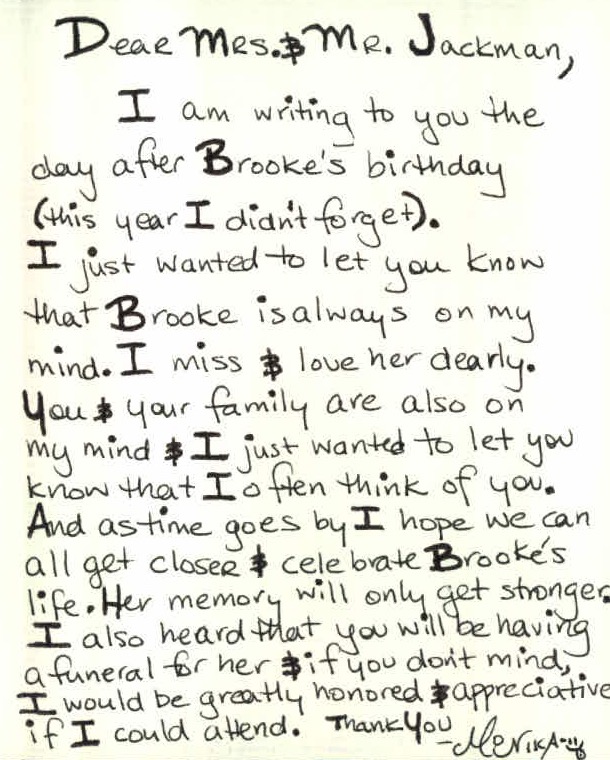 Dear Mrs. & Mr. Jackman,
I am writing to you the
day after Brooke's birthday
(this year I didn't forget).
I just wanted to let you know
that Brooke is always on my
mind. I miss & love her dearly.
You & your family are also on
my mind & I just wanted to let you
know that I often think of you.
And as time goes by I hope we can
all get closer & celebrate Brooke's
life. Her memory will only get stronger.
I also heard that you will be having
a funeral for her & if you don't mind,
I would be greatly honored & appreciative
if I could attend. Thank You
-Merika